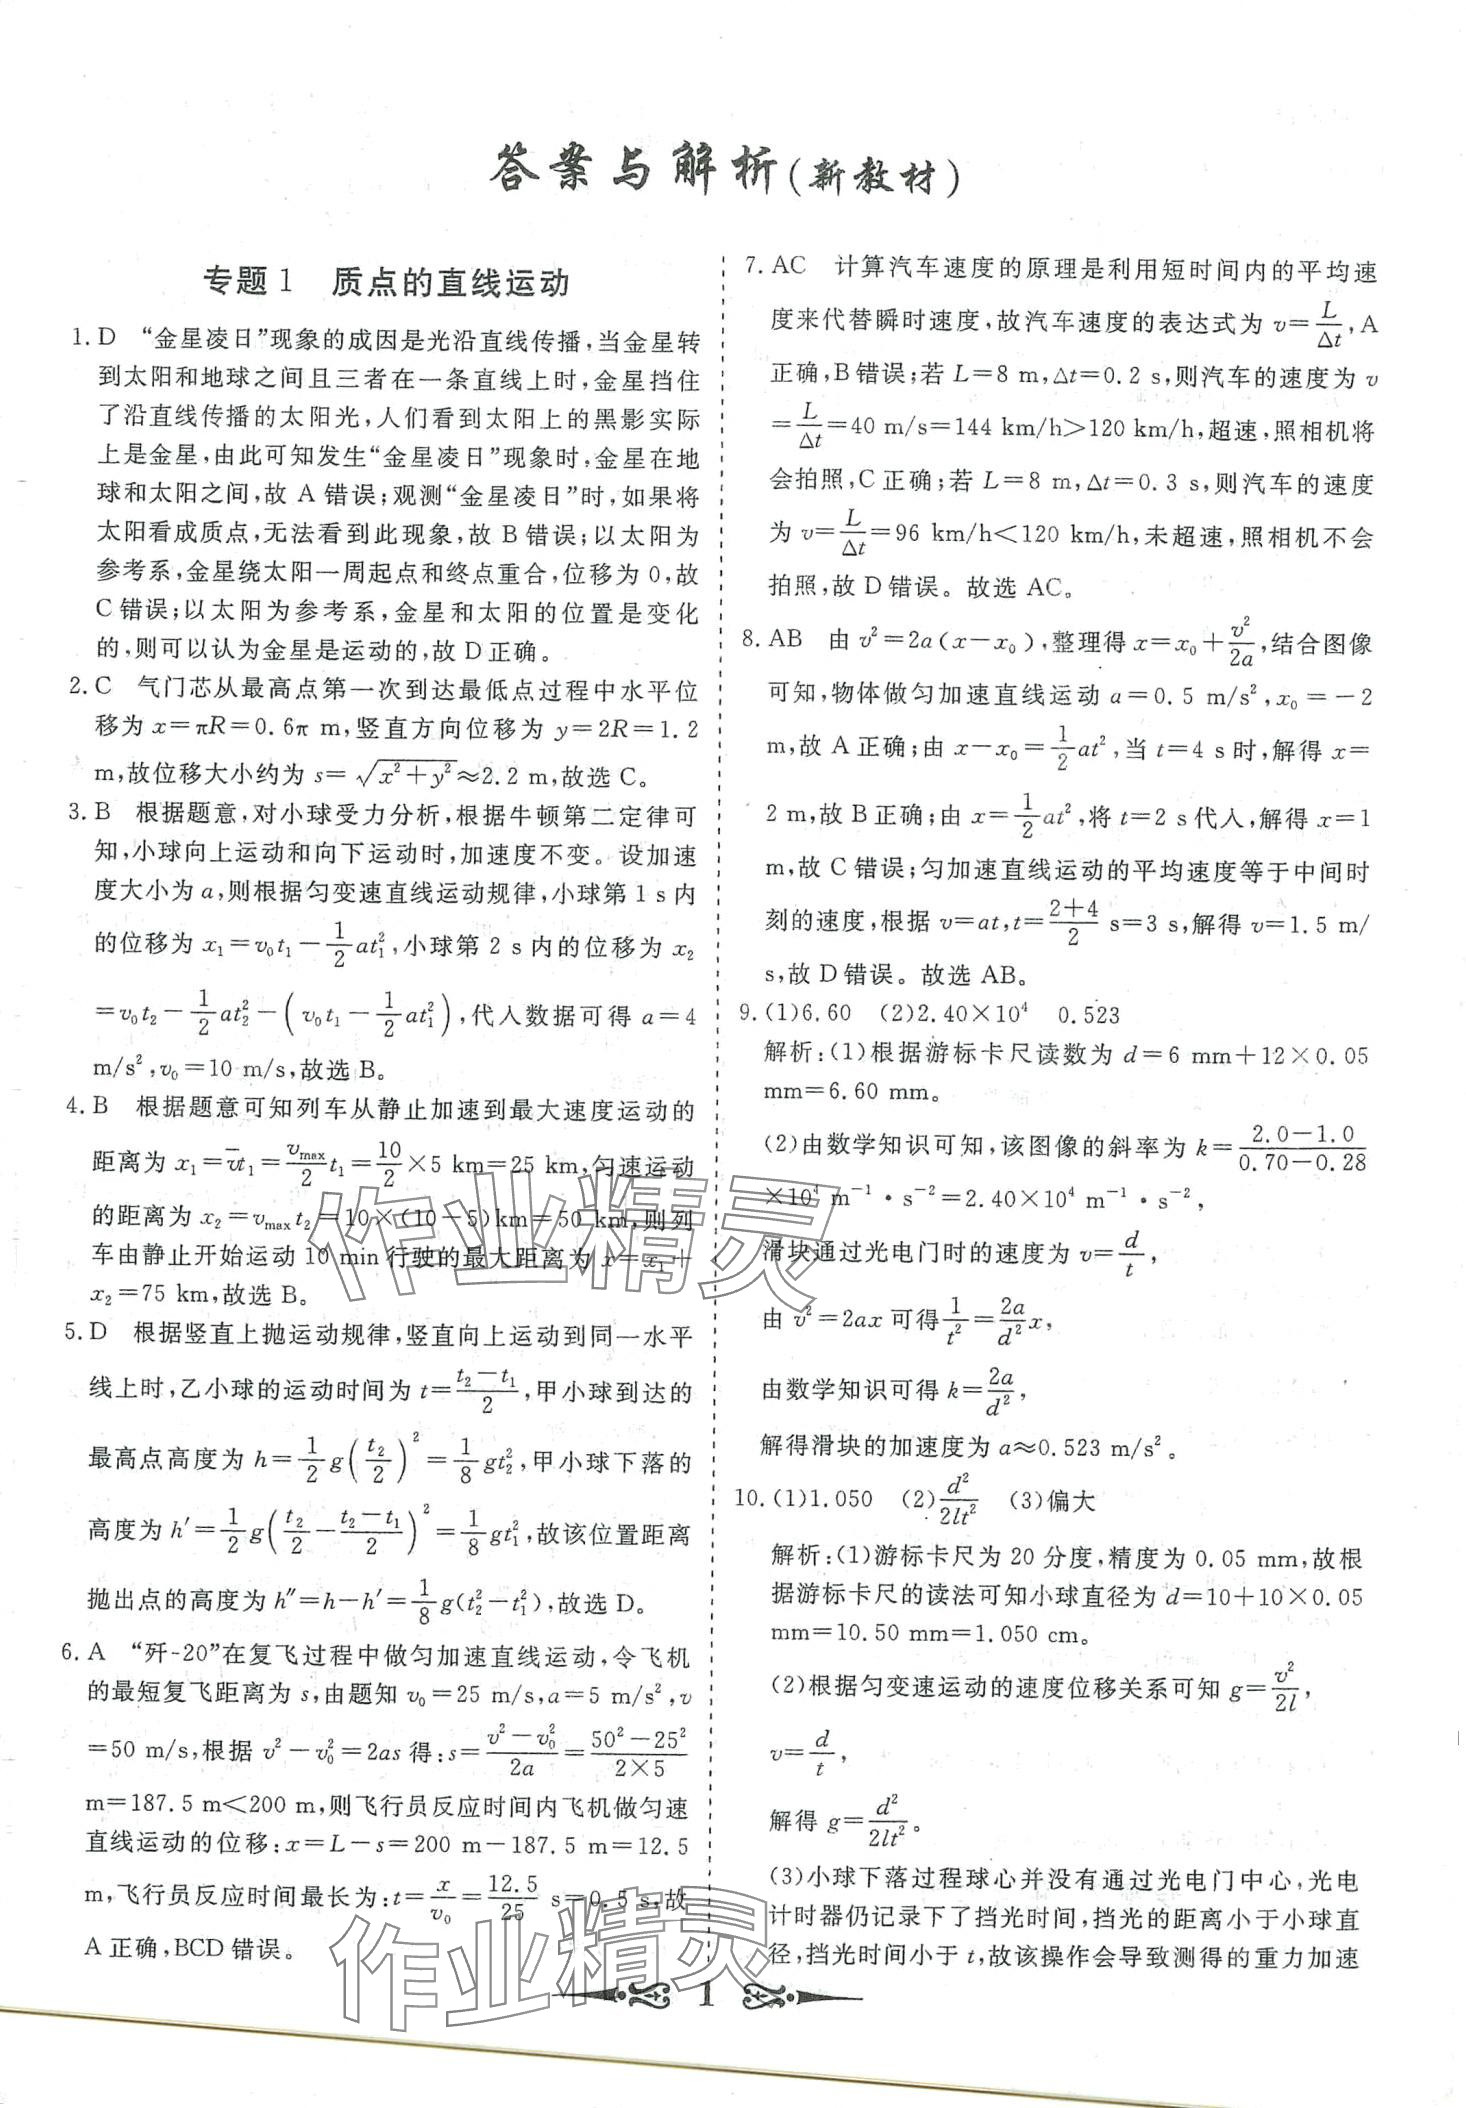 答案与解析(新教材)
专题1 质点的直线运动
1. D “金星凌日”现象的成因是光沿直线传播,当金星转
到太阳和地球之间且三者在一条直线上时,金星挡住
了沿直线传播的太阳光,人们看到太阳上的黑影实际
上是金星,由此可知发生“金星凌日”现象时,金星在地
球和太阳之间,故 A 错误;观测“金星凌日”时,如果将
太阳看成质点,无法看到此现象,故 B 错误;以太阳为
参考系,金星绕太阳一周起点和终点重合,位移为 0,故
C 错误;以太阳为参考系,金星和太阳的位置是变化
的,则可以认为金星是运动的,故 D 正确。
2. C 气门芯从最高点第一次到达最低点过程中水平位
移为 x=πR=0.6π m,竖直方向位移为 y=2R=1.2
m,故位移大小约为 s=√(x²+y²)≈2.2 m,故选 C。
3. B 根据题意,对小球受力分析,根据牛顿第二定律可
知,小球向上运动和向下运动时,加速度不变。设加速
度大小为 a,则根据匀变速直线运动规律,小球第 1 s 内
的位移为 x₁=v₀t₁-1/2 at₁²,小球第 2 s 内的位移为 x₂
=v₀t₂-1/2 at₂²-(v₀t₁-1/2 at₁²),代入数据可得 a=4
m/s²,v₀=10 m/s,故选 B。
4. B 根据题意可知列车从静止加速到最大速度运动的
距离为 x₁=v̄t₁=vmax/2 t₁=10/2×5 km=25 km,匀速运动
的距离为 x₂=vmax t₂=10×(10-5)km=50 km,则列
车由静止开始运动 10 min 行驶的最大距离为 x=x₁+
x₂=75 km,故选 B。
5. D 根据竖直上抛运动规律,竖直向上运动到同一水平
线上时,乙小球的运动时间为 t=(t₂-t₁)/2,甲小球到达的
最高点高度为 h=1/2 g(t₂/2)²=1/8 gt₂²,甲小球下落的
高度为 h′=1/2 g(t₂/2-(t₂-t₁)/2)²=1/8 gt₁²,故该位置距离
抛出点的高度为 h″=h-h′=1/8 g(t₂²-t₁²),故选 D。
6. A “歼-20”在复飞过程中做匀加速直线运动,令飞机
的最短复飞距离为 s,由题知 v₀=25 m/s,a=5 m/s²,v
=50 m/s,根据 v²-v₀²=2as 得:s=(v²-v₀²)/2a=(50²-25²)/(2×5)
m=187.5 m<200 m,则飞行员反应时间内飞机做匀速
直线运动的位移:x=L-s=200 m-187.5 m=12.5
m,飞行员反应时间最长为:t=x/v₀=12.5/25 s=0.5 s,故
A 正确,BCD 错误。
7. AC 计算汽车速度的原理是利用短时间内的平均速
度来代替瞬时速度,故汽车速度的表达式为 v=L/Δt,A
正确,B 错误;若 L=8 m,Δt=0.2 s,则汽车的速度为 v
=L/Δt=40 m/s=144 km/h>120 km/h,超速,照相机将
会拍照,C 正确;若 L=8 m,Δt=0.3 s,则汽车的速度
为 v=L/Δt=96 km/h<120 km/h,未超速,照相机不会
拍照,故 D 错误。故选 AC。
8. AB 由 v²=2a(x-x₀),整理得 x=x₀+v²/2a,结合图像
可知,物体做匀加速直线运动 a=0.5 m/s²,x₀=-2
m,故 A 正确;由 x-x₀=1/2 at²,当 t=4 s 时,解得 x=
2 m,故 B 正确;由 x=1/2 at²,将 t=2 s 代入,解得 x=1
m,故 C 错误;匀加速直线运动的平均速度等于中间时
刻的速度,根据 v=at,t=(2+4)/2 s=3 s,解得 v=1.5 m/
s,故 D 错误。故选 AB。
9. (1)6.60 (2)2.40×10⁴ 0.523
解析:(1)根据游标卡尺读数为 d=6 mm+12×0.05
mm=6.60 mm。
(2)由数学知识可知,该图像的斜率为 k=(2.0-1.0)/(0.70-0.28)
×10⁴ m⁻¹·s⁻²=2.40×10⁴ m⁻¹·s⁻²,
滑块通过光电门时的速度为 v=d/t,
由 v²=2ax 可得 1/t²=2a/d² x,
由数学知识可得 k=2a/d²,
解得滑块的加速度为 a≈0.523 m/s²。
10. (1)1.050 (2)d²/2lt² (3)偏大
解析:(1)游标卡尺为 20 分度,精度为 0.05 mm,故根
据游标卡尺的读法可知小球直径为 d=10+10×0.05
mm=10.50 mm=1.050 cm。
(2)根据匀变速运动的速度位移关系可知 g=v²/2l,
v=d/t,
解得 g=d²/2lt²。
(3)小球下落过程球心并没有通过光电门中心,光电
计时器仍记录下了挡光时间,挡光的距离小于小球直
径,挡光时间小于 t,故该操作会导致测得的重力加速
1
作业精灵
作业精灵